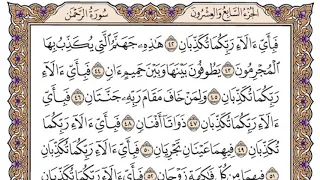 الجزء السابع والعشرون سورة الرحمن
فَبِأَيِّ ءَالَآءِ رَبِّكُمَا تُكَذِّبَانِ ٤٢ هَٰذِهِۦ جَهَنَّمُ ٱلَّتِي يُكَذِّبُ بِهَا
ٱلْمُجْرِمُونَ ٤٣ يَطُوفُونَ بَيْنَهَا وَبَيْنَ حَمِيمٍ ءَانٍ ٤٤ فَبِأَيِّ ءَالَآءِ
رَبِّكُمَا تُكَذِّبَانِ ٤٥ وَلِمَنْ خَافَ مَقَامَ رَبِّهِۦ جَنَّتَانِ ٤٦ فَبِأَيِّ
ءَالَآءِ رَبِّكُمَا تُكَذِّبَانِ ٤٧ ذَوَاتَآ أَفْنَانٍ ٤٨ فَبِأَيِّ ءَالَآءِ رَبِّكُمَا
تُكَذِّبَانِ ٤٩ فِيهِمَا عَيْنَانِ تَجْرِيَانِ ٥٠ فَبِأَيِّ ءَالَآءِ رَبِّكُمَا تُكَذِّبَانِ
٥١ فِيهِمَا مِن كُلِّ فَٰكِهَةٍ زَوْجَانِ ٥٢ فَبِأَيِّ ءَالَآءِ